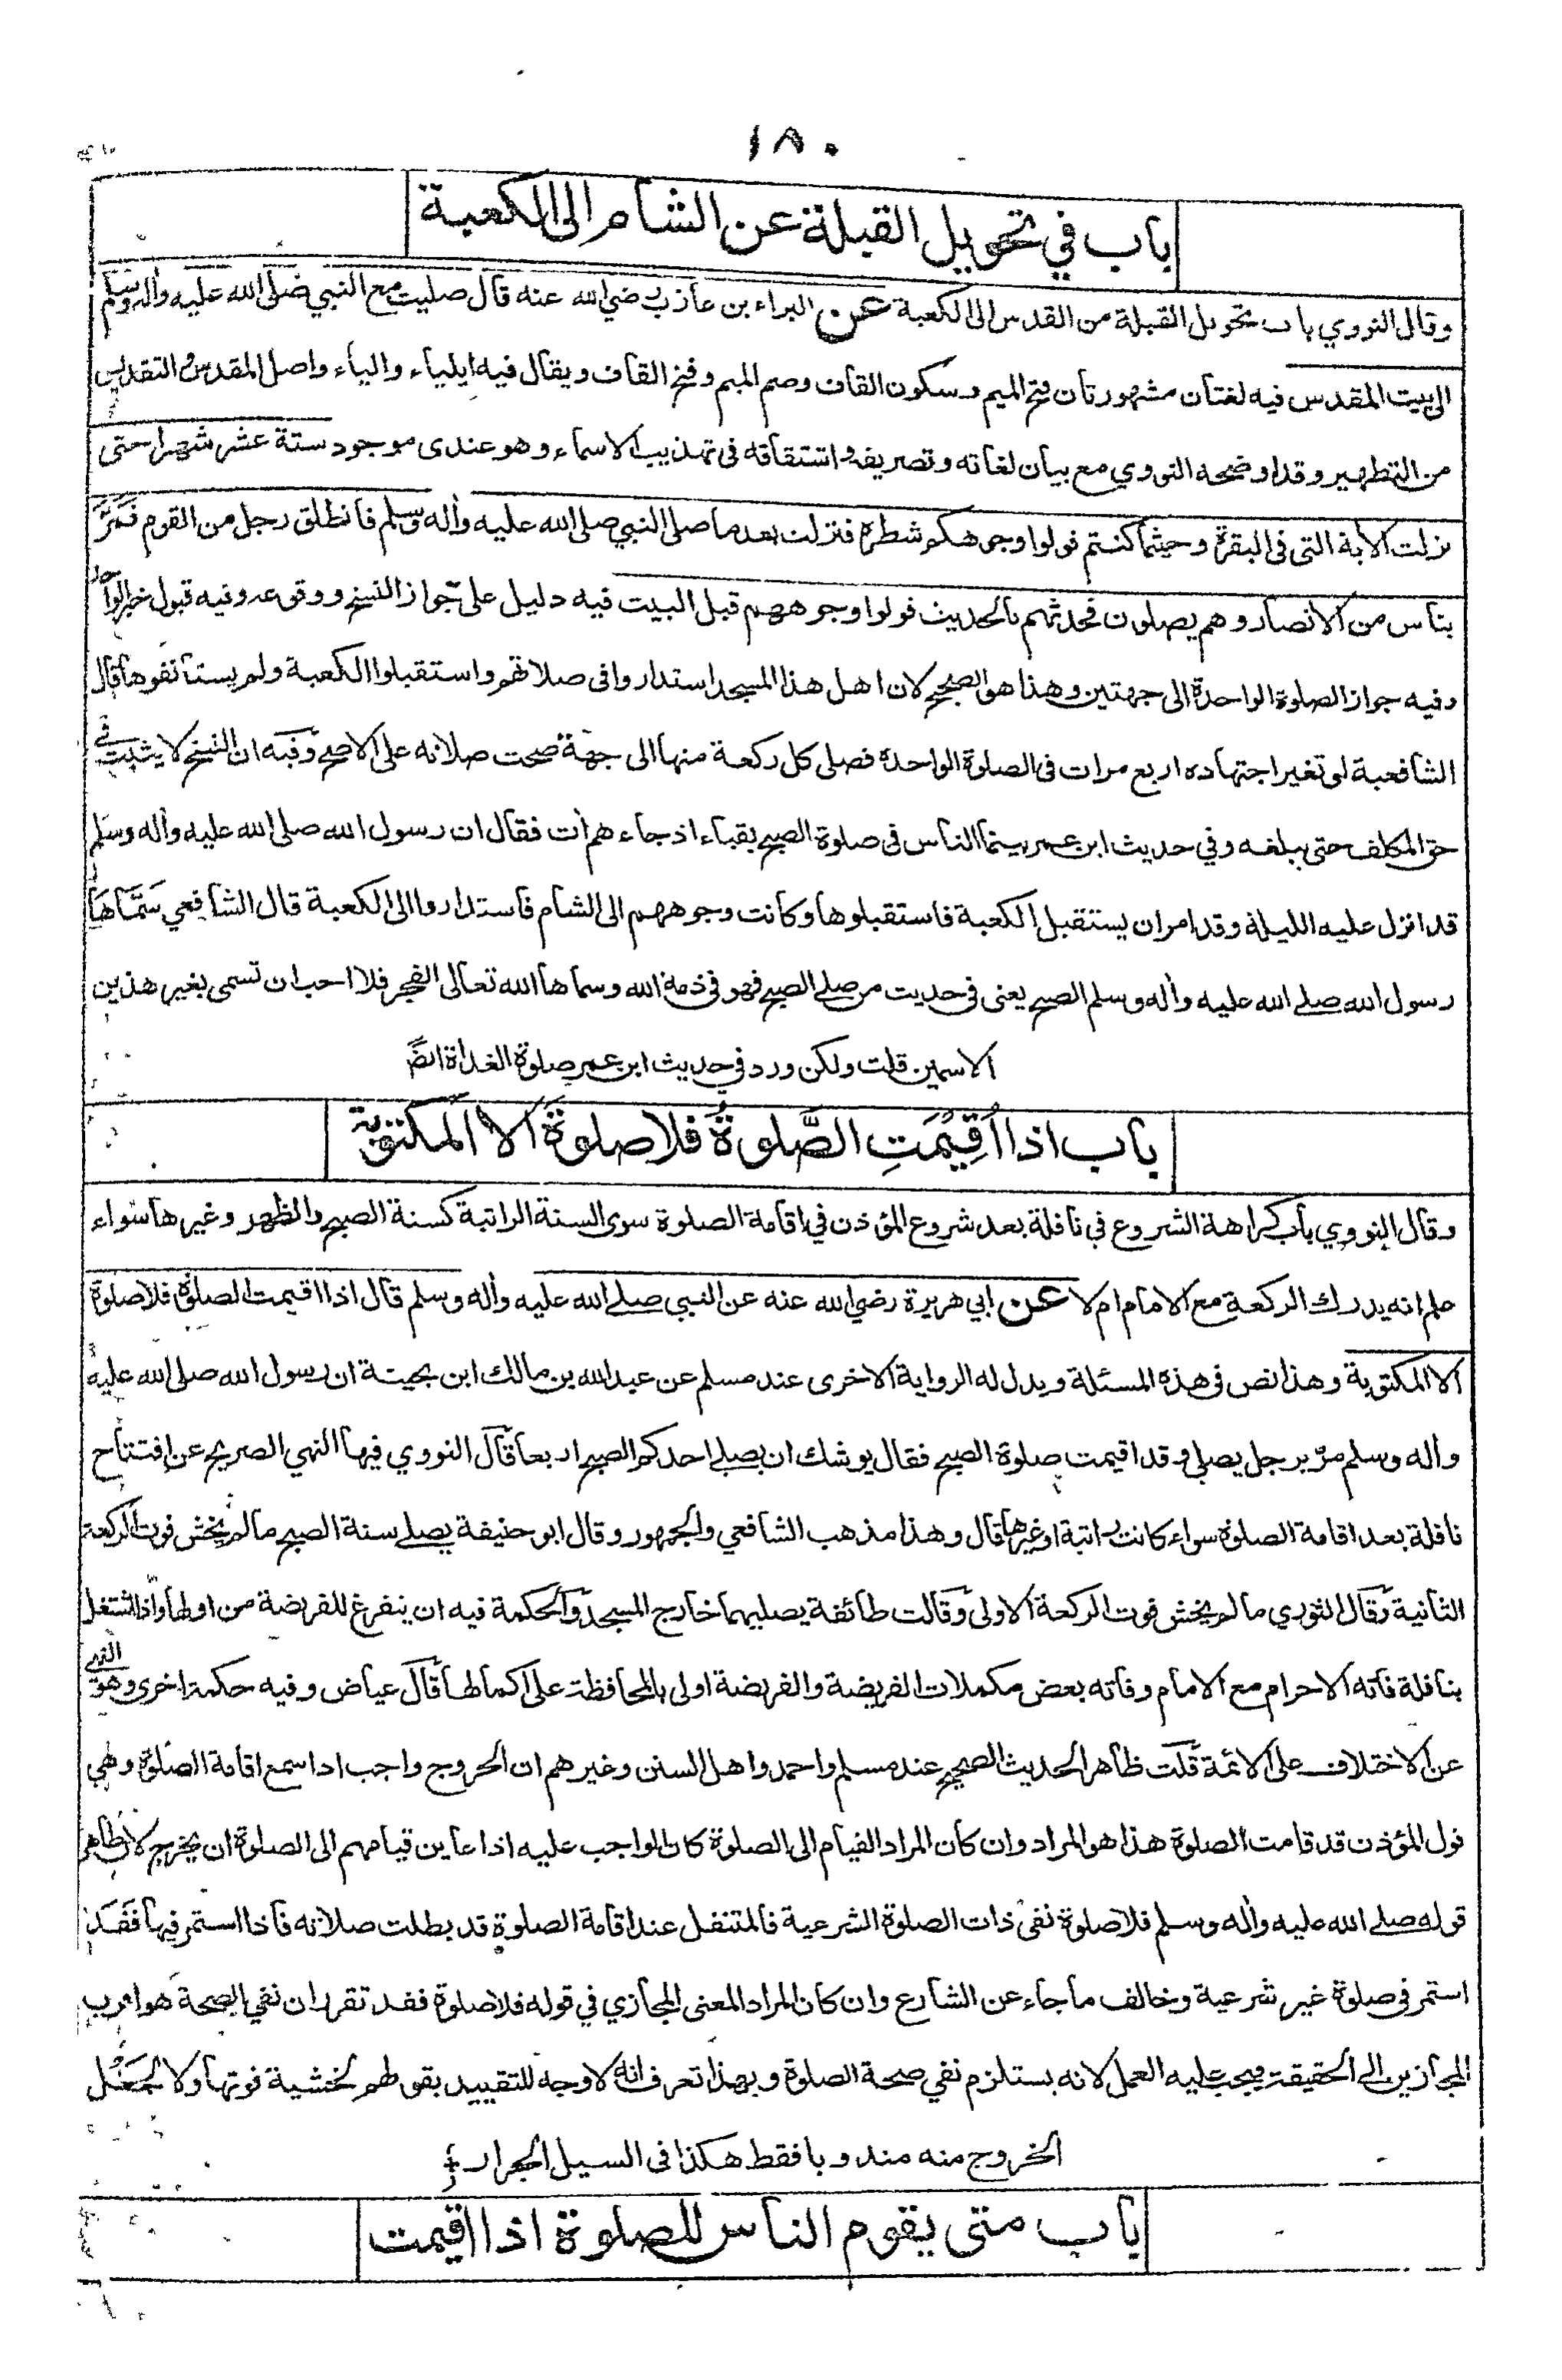 ١٨٠
باب في تحويل القبلة عن الشام الى الكعبة
وقال النووي باب تحويل القبلة من القدس الى الكعبة عن البراء بن عازب رضي الله عنه قال صليت مع النبي صلى الله عليه وأله وسلم
الى بيت المقدس فيه لغتان مشهورتان فتح الميم وسكون القاف وضم الميم وفتح القاف ويقال فيه ايلياء والياء واصل المقدس والتقديس
من التطهير وقد اوضحه النووي مع بيان لغاته وتصريفه واشتقاقه فى تهذيب الاسماء وهو عندى موجود ستة عشر شهرا حتى
نزلت الأية التى فى البقرة وحيثما كنتم فولوا وجوهكم شطره فنزلت بعد ما صلى النبي صلى الله عليه وأله وسلم فانطلق رجل من القوم فمَرَّ
بناس من الانصار وهم يصلون فحدثهم بالحديث فولوا وجوههم قبل البيت فيه دليل على جواز النسخ ووقوعه وفيه قبول خبر الواحد
وفيه جواز الصلوة الواحدة الى جهتين وهذا هو الصحيح لان اهل هذا المسجد استداروا فى صلاتهم واستقبلوا الكعبة ولم يستأنفوها قال
الشافعية لو تغير اجتهاده اربع مرات فى الصلوة الواحدة فصلى كل ركعة منها الى جهة صحت صلاته على الاصح وفيه ان النسخ لا يثبت في
حق المكلف حتى يبلغه وفي حديث ابن عمر بينما الناس فى صلوة الصبح بقباء اذ جاءهم أت فقال ان رسول الله صلى الله عليه وأله وسلم
قد انزل عليه الليلة وقد امر ان يستقبل الكعبة فاستقبلوها وكانت وجوههم الى الشام فاستداروا الى الكعبة قال الشافعي سَمَّاهَا
رسول الله صلى الله عليه وأله وسلم الصبح يعنى فى حديث من صلى الصبح فهو فى ذمة الله وسماها الله تعالى الفجر فلا احب ان تسمى بغير هذين
الاسمين قلت ولكن ورد في حديث ابن عمر صلوة الغداة ايضًا
باب اذا اُقِيْمَتِ الصَّلوةُ فلا صلوةَ الا المكتوبة
وقال النووي باب كراهة الشروع في نافلة بعد شروع المؤذن في اقامة الصلوة سوى السنة الراتبة كسنة الصبح والظهر وغيرها سواء
علم انه يدرك الركعة مع الامام ام لا عن ابي هريرة رضي الله عنه عن النبي صلى الله عليه وأله وسلم قال اذا اقيمت الصلوة فلا صلوة
الا المكتوبة وهذا نص فى هذه المسئلة ويدل له الرواية الاخرى عند مسلم عن عبد الله بن مالك ابن بحينة ان رسول الله صلى الله عليه
وأله وسلم مرّ برجل يصلي وقد اقيمت صلوة الصبح فقال يوشك ان يصلى احدكم الصبح اربعا قال النووي فيها النهي الصريح عن افتتاح
نافلة بعد اقامة الصلوة سواء كانت راتبة او غيرها قال وهذا مذهب الشافعي والجمهور وقال ابو حنيفة يصلى سنة الصبح ما لم يخش فوت الركعة
الثانية وقال الثوري ما لم يخش فوت الركعة الاولى وقالت طائفة يصليهما خارج المسجد والحكمة فيه ان يتفرغ للفريضة من اولها واذا اشتغل
بنافلة فاته الاحرام مع الامام وفاته بعض مكملات الفريضة والفريضة اولى بالمحافظة على اكمالها قال عياض وفيه حكمة اخرى وهو النهي
عن الاختلاف على الائمة قلت ظاهر الحديث الصحيح عند مسلم واحمد واهل السنن وغيرهم ان الخروج واجب اذا سمع اقامة الصلوة وهي
قول المؤذن قد قامت الصلوة هذا هو المراد وان كان المراد القيام الى الصلوة كان الواجب عليه اذا عاين قيامهم الى الصلوة ان يخرج لان ظاهر
قوله صلى الله عليه وأله وسلم فلا صلوة نفى ذات الصلوة الشرعية فالمتنفل عند اقامة الصلوة قد بطلت صلاته فاذا استمر فيها فقد
استمر فى صلوة غير شرعية وخالف ما جاء عن الشارع وان كان المراد المعنى المجازي في قوله فلا صلوة فقد تقرر ان نفي الصحة هو اقرب
المجازين الى الحقيقة فيجب عليه العمل لانه يستلزم نفي صحة الصلوة وبهذا تعرف انه لا وجه للتقييد بقولهم لخشية فوتها ولا لجَعْل
الخروج منه مندوبا فقط هكذا فى السيل الجرار
باب متى يقوم الناس للصلوة اذا اقيمت